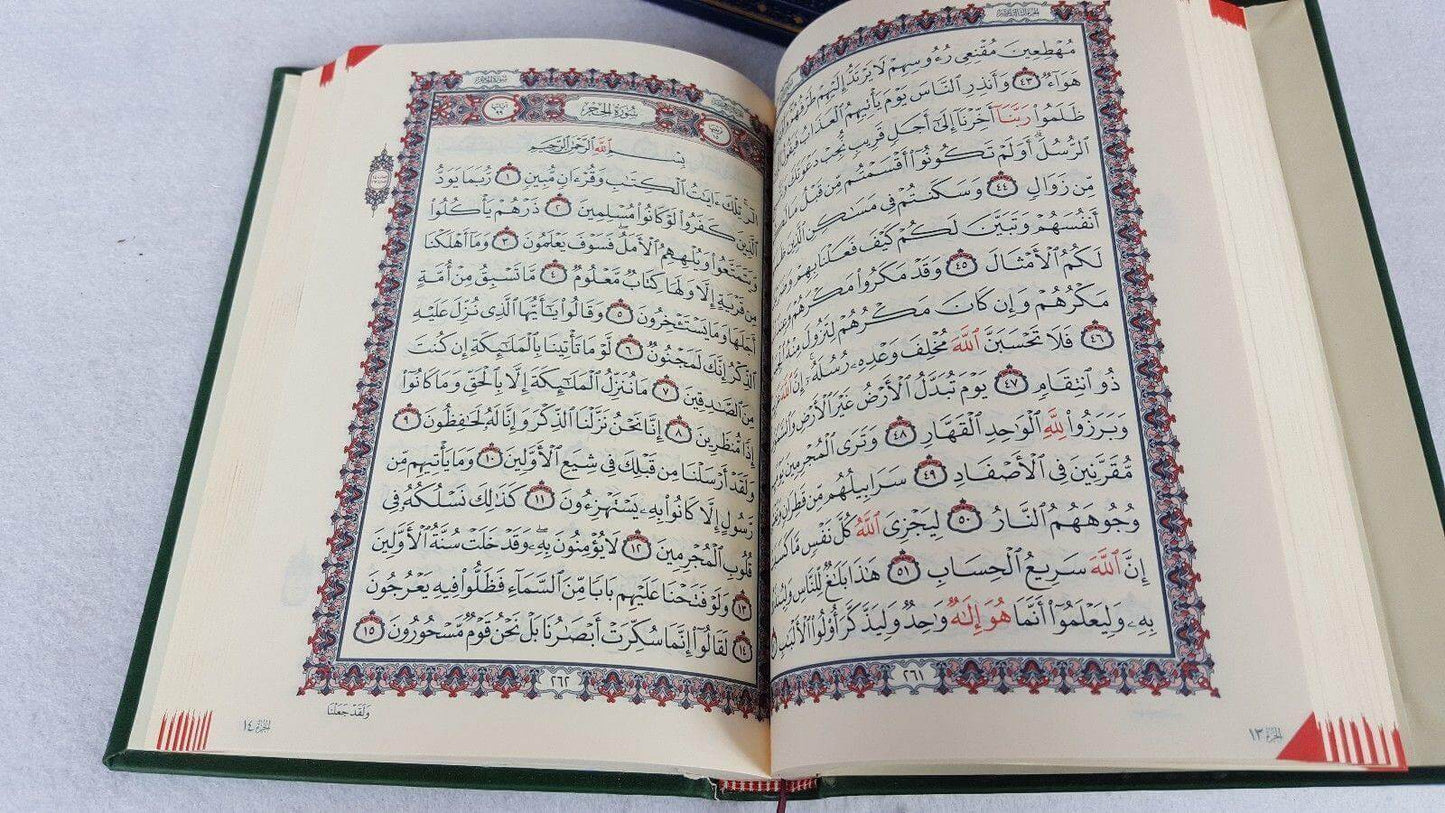 مُهۡطِعِينَ مُقۡنِعِي رُءُوسِهِمۡ لَا يَرۡتَدُّ إِلَيۡهِمۡ طَرۡفُهُمۡ
هَوَآءٞ ٤٣ وَأَنذِرِ ٱلنَّاسَ يَوۡمَ يَأۡتِيهِمُ ٱلۡعَذَابُ فَيَقُولُ
ظَلَمُواْ رَبَّنَآ أَخِّرۡنَآ إِلَىٰٓ أَجَلٖ قَرِيبٖ نُّجِبۡ دَعۡوَتَكَ
ٱلرُّسُلَۗ أَوَلَمۡ تَكُونُوٓاْ أَقۡسَمۡتُم مِّن قَبۡلُ مَا
مِّن زَوَالٖ ٤٤ وَسَكَنتُمۡ فِي مَسَٰكِنِ ٱلَّذِينَ
أَنفُسَهُمۡ وَتَبَيَّنَ لَكُمۡ كَيۡفَ فَعَلۡنَا بِهِمۡ
لَكُمُ ٱلۡأَمۡثَالَ ٤٥ وَقَدۡ مَكَرُواْ مَكۡرَهُمۡ
مَكۡرُهُمۡ وَإِن كَانَ مَكۡرُهُمۡ لِتَزُولَ مِنۡهُ
٤٦ فَلَا تَحۡسَبَنَّ ٱللَّهَ مُخۡلِفَ وَعۡدِهِۦ رُسُلَهُۥٓۚ إِنَّ ٱللَّهَ
ذُو ٱنتِقَامٖ ٤٧ يَوۡمَ تُبَدَّلُ ٱلۡأَرۡضُ غَيۡرَ ٱلۡأَرۡضِ
وَبَرَزُواْ لِلَّهِ ٱلۡوَٰحِدِ ٱلۡقَهَّارِ ٤٨ وَتَرَى ٱلۡمُجۡرِمِينَ
مُّقَرَّنِينَ فِي ٱلۡأَصۡفَادِ ٤٩ سَرَابِيلُهُم مِّن قَطِرَانٖ
وُجُوهَهُمُ ٱلنَّارُ ٥٠ لِيَجۡزِيَ ٱللَّهُ كُلَّ نَفۡسٖ مَّا
إِنَّ ٱللَّهَ سَرِيعُ ٱلۡحِسَابِ ٥١ هَٰذَا بَلَٰغٞ لِّلنَّاسِ
بِهِۦ وَلِيَعۡلَمُوٓاْ أَنَّمَا هُوَ إِلَٰهٞ وَٰحِدٞ وَلِيَذَّكَّرَ أُوْلُواْ ٱلۡأَلۡبَٰبِ
٢٦١
الجزء ١٣
سُورَةُ الحِجۡرِ
بِسۡمِ ٱللَّهِ ٱلرَّحۡمَٰنِ ٱلرَّحِيمِ
الٓرۚ تِلۡكَ ءَايَٰتُ ٱلۡكِتَٰبِ وَقُرۡءَانٖ مُّبِينٖ ١ رُّبَمَا يَوَدُّ
ٱلَّذِينَ كَفَرُواْ لَوۡ كَانُواْ مُسۡلِمِينَ ٢ ذَرۡهُمۡ يَأۡكُلُواْ
وَيَتَمَتَّعُواْ وَيُلۡهِهِمُ ٱلۡأَمَلُۖ فَسَوۡفَ يَعۡلَمُونَ ٣ وَمَآ أَهۡلَكۡنَا
مِن قَرۡيَةٍ إِلَّا وَلَهَا كِتَابٞ مَّعۡلُومٞ ٤ مَّا تَسۡبِقُ مِنۡ أُمَّةٍ
أَجَلَهَا وَمَا يَسۡتَـٔۡخِرُونَ ٥ وَقَالُواْ يَٰٓأَيُّهَا ٱلَّذِي نُزِّلَ عَلَيۡهِ
ٱلذِّكۡرُ إِنَّكَ لَمَجۡنُونٞ ٦ لَّوۡ مَا تَأۡتِينَا بِٱلۡمَلَٰٓئِكَةِ إِن كُنتَ
مِنَ ٱلصَّٰدِقِينَ ٧ مَا نُنَزِّلُ ٱلۡمَلَٰٓئِكَةَ إِلَّا بِٱلۡحَقِّ وَمَا كَانُوٓاْ
إِذٗا مُّنظَرِينَ ٨ إِنَّا نَحۡنُ نَزَّلۡنَا ٱلذِّكۡرَ وَإِنَّا لَهُۥ لَحَٰفِظُونَ ٩
وَلَقَدۡ أَرۡسَلۡنَا مِن قَبۡلِكَ فِي شِيَعِ ٱلۡأَوَّلِينَ ١٠ وَمَا يَأۡتِيهِم مِّن
رَّسُولٍ إِلَّا كَانُواْ بِهِۦ يَسۡتَهۡزِءُونَ ١١ كَذَٰلِكَ نَسۡلُكُهُۥ فِي
قُلُوبِ ٱلۡمُجۡرِمِينَ ١٢ لَا يُؤۡمِنُونَ بِهِۦ وَقَدۡ خَلَتۡ سُنَّةُ ٱلۡأَوَّلِينَ
١٣ وَلَوۡ فَتَحۡنَا عَلَيۡهِم بَابٗا مِّنَ ٱلسَّمَآءِ فَظَلُّواْ فِيهِ يَعۡرُجُونَ
١٤ لَقَالُوٓاْ إِنَّمَا سُكِّرَتۡ أَبۡصَٰرُنَا بَلۡ نَحۡنُ قَوۡمٞ مَّسۡحُورُونَ ١٥
٢٦٢
وَلَقَدۡ جَعَلۡنَا
الجزء ١٤